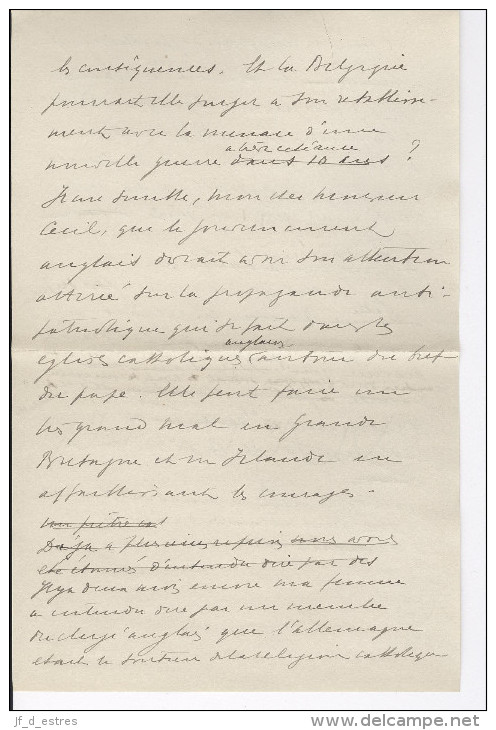 les conséquences. Et la Belgique
pourrait-elle songer à son rétablisse-
ment avec la menace d'une
à brève échéance
nouvelle guerre dans 10 ans ?
Il me semble, mon cher Monsieur
Cecil, que le gouvernement
anglais devrait avoir son attention
attirée sur la propagande anti-
patriotique qui se fait dans les
anglaises
églises catholiques autour du bref
du pape. Elle peut faire un
très grand mal en Grande
Bretagne et en Irlande en
affaiblissant les courages.
un prêtre cat
Déjà à plusieurs reprises nous avons
été étonnés d'entendre dire par des
Il y a deux mois encore ma femme
a entendu dire par un membre
du clergé anglais que l'allemagne
était le soutien de la religion catholique
jf_d_estres
www.delcampe.net